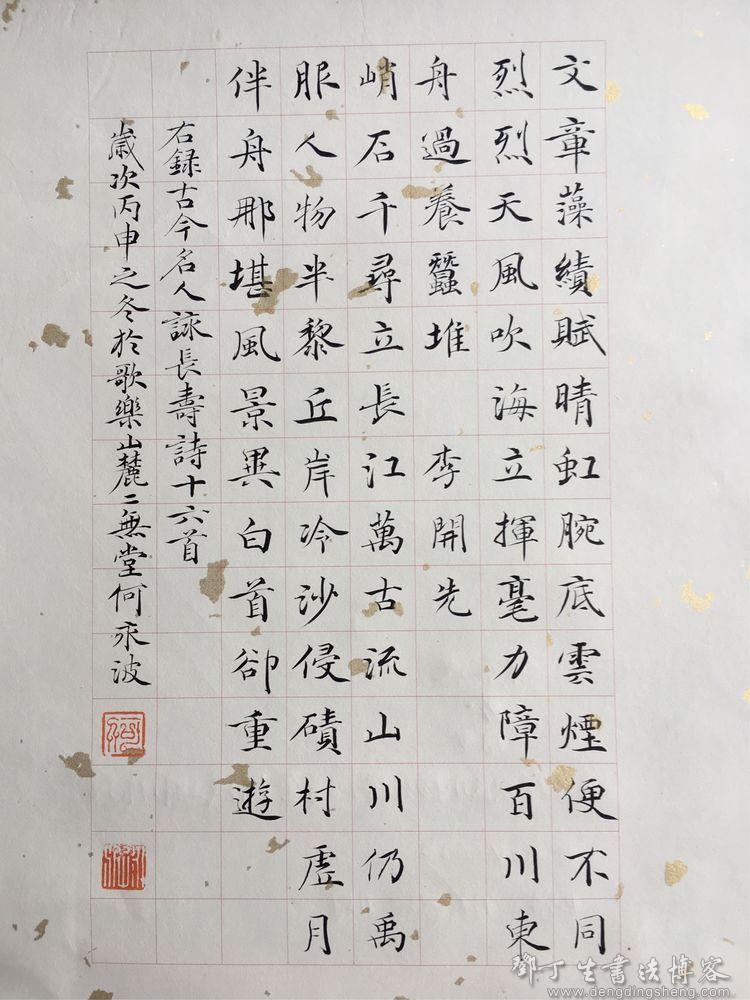 文章藻繢賦晴虹腕底雲煙便不同
烈烈天風吹海立揮毫力障百川東
舟過養蠶堆 李開先
峭石千尋立長江萬古流山川仍禹
服人物半黎丘岸冷沙侵磧村虛月
伴舟那堪風景異白首卻重遊
右錄古今名人詠長壽詩十六首
歲次丙申之冬於歌樂山麓二無堂何永波
鄧丁生書法博客
www.dengdingsheng.com